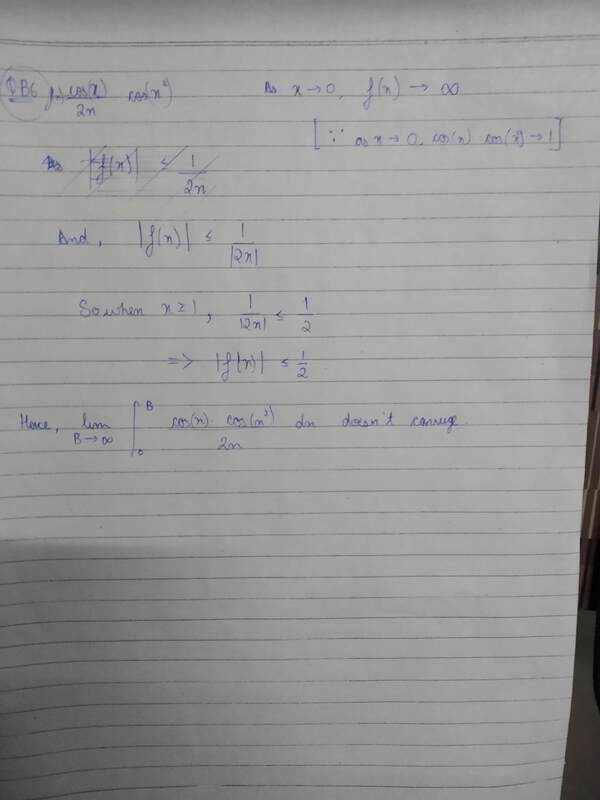 QB6 f(x) = cos(x)/2x cos(x²) As x → 0, f(x) → ∞
[∵ as x → 0, cos(x) · cos(x²) → 1]
As |f(x)| ≤ 1/2x
And, |f(x)| ≤ 1/|2x|
So when x ≥ 1, 1/|2x| ≤ 1/2
=> |f(x)| ≤ 1/2
Hence, lim B→∞ ∫₀ᴮ cos(x) · cos(x²)/2x dx doesn't converge.